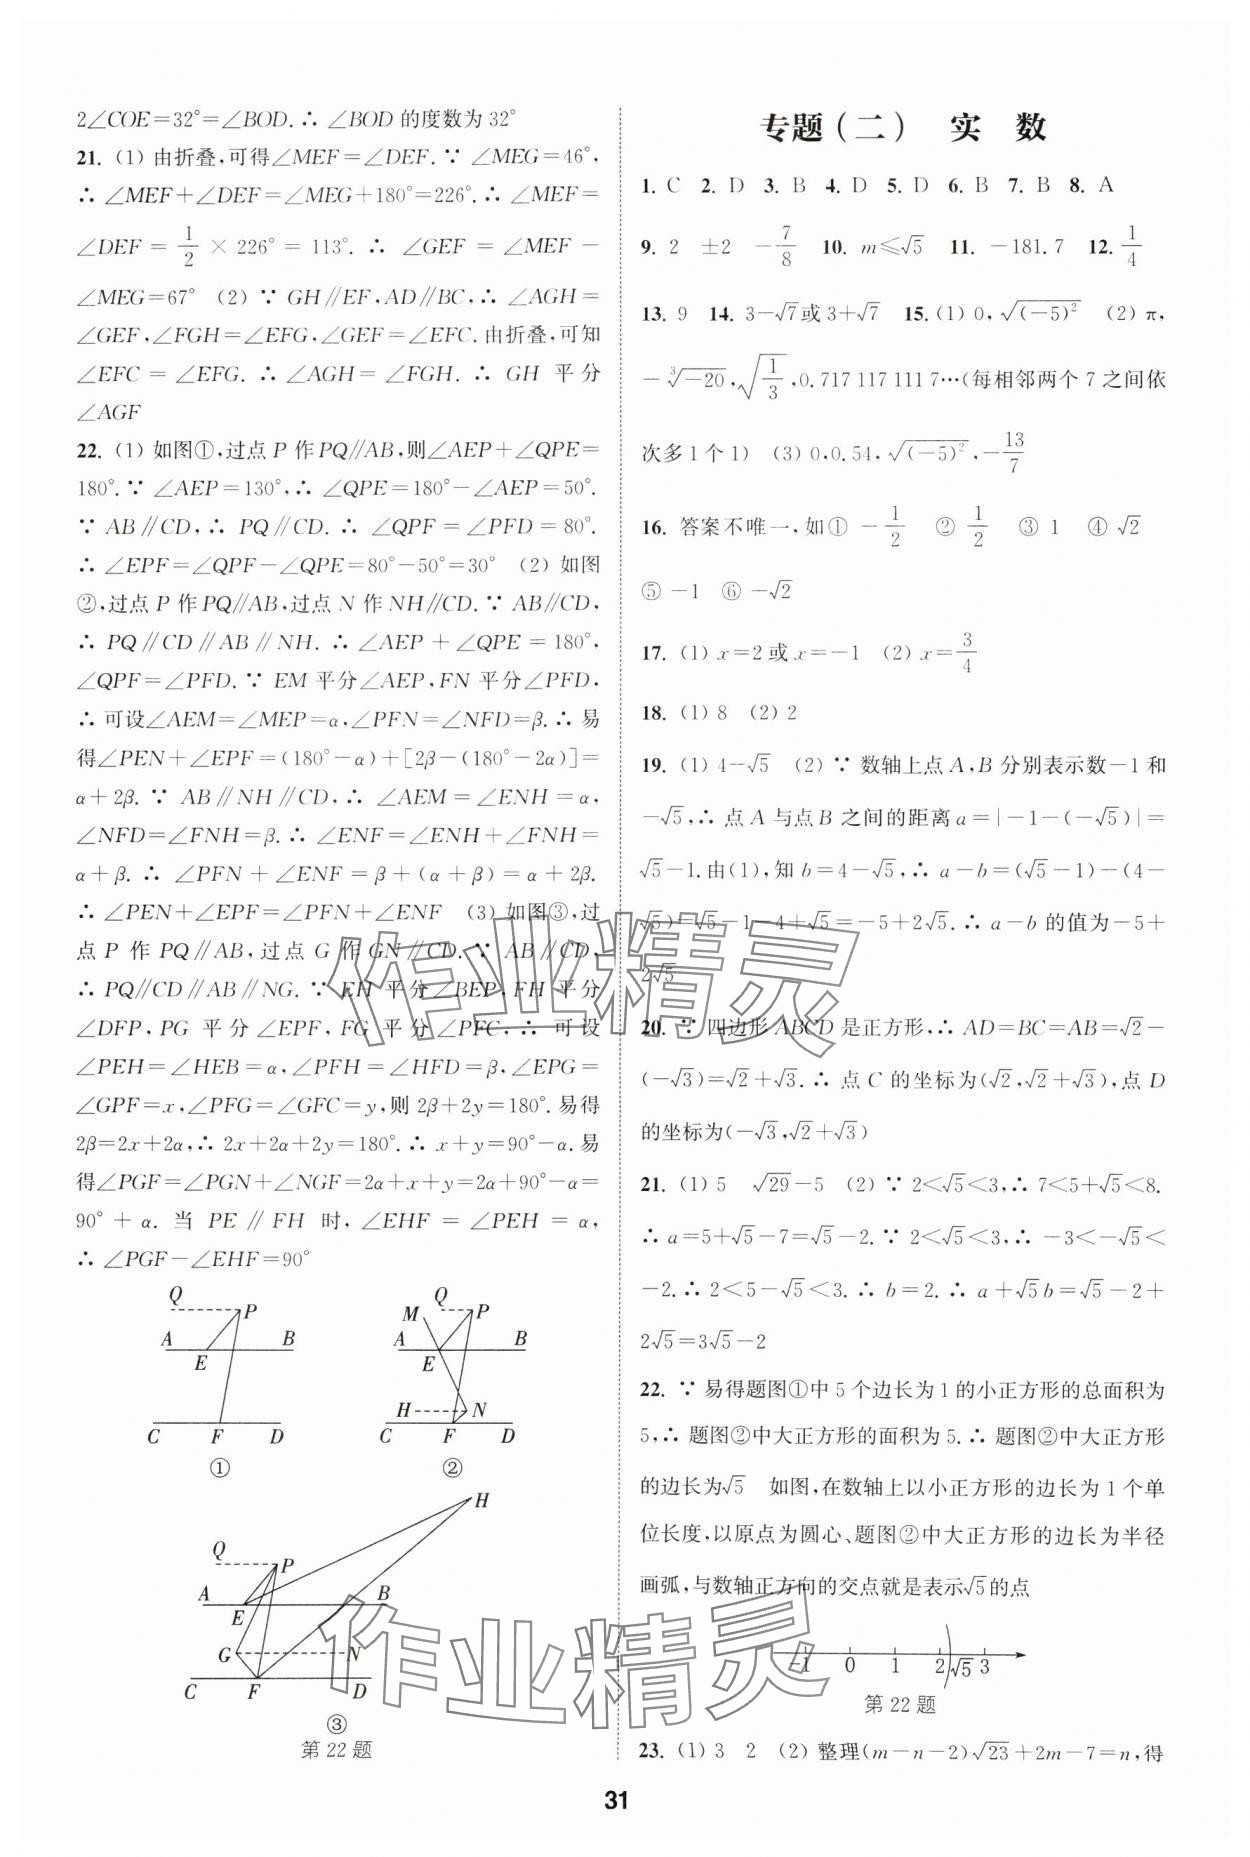 2∠COE=32°=∠BOD.∴ ∠BOD 的度数为 32°
21. (1) 由折叠,可得∠MEF=∠DEF.∵ ∠MEG=46°,
∴ ∠MEF+∠DEF=∠MEG+180°=226°.∴ ∠MEF=
∠DEF = 1/2 × 226° = 113°. ∴ ∠GEF = ∠MEF −
∠MEG=67° (2) ∵ GH∥EF,AD∥BC,∴ ∠AGH=
∠GEF,∠FGH=∠EFG,∠GEF=∠EFC.由折叠,可知
∠EFC = ∠EFG. ∴ ∠AGH = ∠FGH. ∴ GH 平分
∠AGF
22. (1) 如图①,过点 P 作 PQ∥AB,则∠AEP+∠QPE=
180°.∵ ∠AEP=130°,∴ ∠QPE=180°−∠AEP=50°.
∵ AB∥CD,∴ PQ∥CD.∴ ∠QPF=∠PFD=80°.
∴ ∠EPF=∠QPF−∠QPE=80°−50°=30° (2) 如图
②,过点 P 作 PQ∥AB,过点 N 作 NH∥CD.∵ AB∥CD,
∴ PQ∥CD∥AB∥NH.∴ ∠AEP+∠QPE=180°,
∠QPF=∠PFD.∵ EM 平分∠AEP,FN 平分∠PFD,
∴ 可设∠AEM=∠MEP=α,∠PFN=∠NFD=β.∴ 易
得∠PEN+∠EPF=(180°−α)+[2β−(180°−2α)]=
α+2β.∵ AB∥NH∥CD,∴ ∠AEM=∠ENH=α,
∠NFD=∠FNH=β.∴ ∠ENF=∠ENH+∠FNH=
α+β. ∴ ∠PFN+∠ENF=β+(α+β)=α+2β.
∴ ∠PEN+∠EPF=∠PFN+∠ENF (3) 如图③,过
点 P 作 PQ∥AB,过点 G 作 GN∥CD.∵ AB∥CD,
∴ PQ∥CD∥AB∥NG.∵ EH 平分∠BEP,FH 平分
∠DFP,PG 平分∠EPF,FG 平分∠PFC,∴ 可设
∠PEH=∠HEB=α,∠PFH=∠HFD=β,∠EPG=
∠GPF=x,∠PFG=∠GFC=y,则 2β+2y=180°.易得
2β=2x+2α,∴ 2x+2α+2y=180°.∴ x+y=90°−α.易
得∠PGF=∠PGN+∠NGF=2α+x+y=2α+90°−α=
90°+α. 当 PE∥FH 时,∠EHF=∠PEH=α,
∴ ∠PGF−∠EHF=90°
Q P
A E B
C F D
①
M Q P
A E B
H N
C F D
②
H
Q P
A E B
G N
C F D
③
第 22 题
专题(二) 实 数
1. C 2. D 3. B 4. D 5. D 6. B 7. B 8. A
9. 2 ±2 −7/8 10. m≤√5 11. −181.7 12. 1/4
13. 9 14. 3−√7或 3+√7 15. (1) 0,√(−5)² (2) π,
−∛−20,√1/3,0.717 117 111 7⋯(每相邻两个 7 之间依
次多 1 个 1) (3) 0,0.54,√(−5)²,−13/7
16. 答案不唯一,如① −1/2 ② 1/2 ③ 1 ④ √2
⑤ −1 ⑥ −√2
17. (1) x=2 或 x=−1 (2) x=3/4
18. (1) 8 (2) 2
19. (1) 4−√5 (2) ∵ 数轴上点 A,B 分别表示数−1 和
−√5,∴ 点 A 与点 B 之间的距离 a=|−1−(−√5)|=
√5−1.由(1),知 b=4−√5,∴ a−b=(√5−1)−(4−
√5)=√5−1−4+√5=−5+2√5.∴ a−b 的值为−5+
2√5
20. ∵ 四边形 ABCD 是正方形,∴ AD=BC=AB=√2−
(−√3)=√2+√3.∴ 点 C 的坐标为(√2,√2+√3),点 D
的坐标为(−√3,√2+√3)
21. (1) 5 √29−5 (2) ∵ 2<√5<3,∴ 7<5+√5<8.
∴ a=5+√5−7=√5−2.∵ 2<√5<3,∴ −3<−√5<
−2.∴ 2<5−√5<3.∴ b=2.∴ a+√5b=√5−2+
2√5=3√5−2
22. ∵ 易得题图①中 5 个边长为 1 的小正方形的总面积为
5,∴ 题图②中大正方形的面积为 5.∴ 题图②中大正方形
的边长为√5 如图,在数轴上以小正方形的边长为 1 个单
位长度,以原点为圆心、题图②中大正方形的边长为半径
画弧,与数轴正方向的交点就是表示√5的点
−1 0 1 2 √5 3
第 22 题
23. (1) 3 2 (2) 整理(m−n−2)√23+2m−7=n,得
31
作业精灵
作业精灵